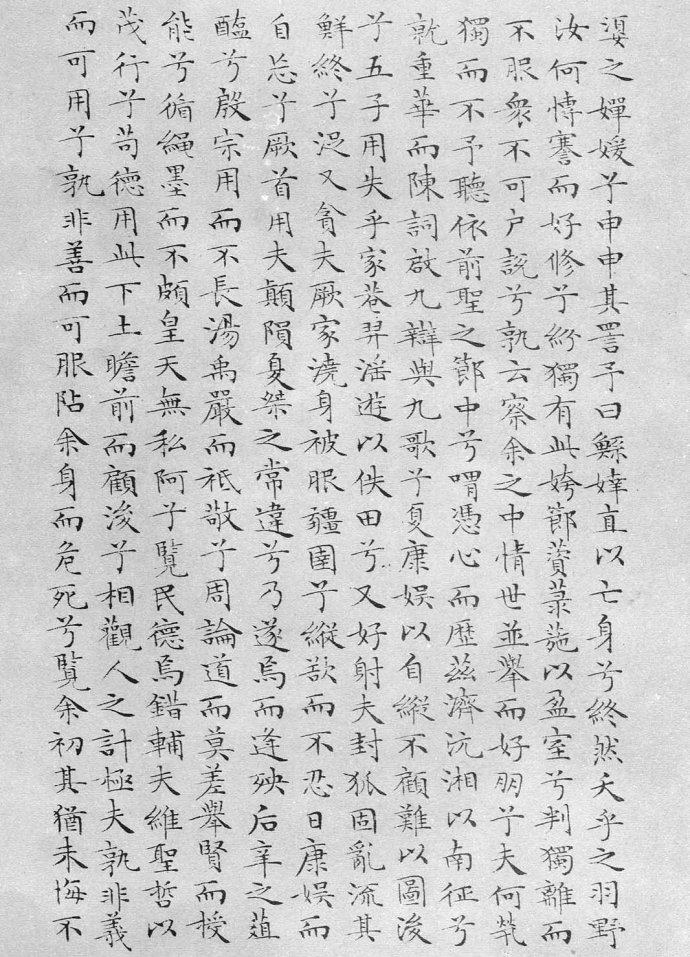 嬃之嬋媛兮申申其詈予曰鯀婞直以亡身兮終然夭乎之羽野
汝何博謇而好修兮紛獨有此姱節薋菉葹以盈室兮判獨離而
不服衆不可户說兮孰云察余之中情世並舉而好朋兮夫何煢
獨而不予聽依前聖之節中兮喟憑心而歷茲濟沅湘以南征兮
就重華而陳詞啟九辯與九歌兮夏康娛以自縱不顧難以圖後
兮五子用失乎家巷羿淫遊以佚田兮又好射夫封狐固亂流其
鮮終兮浞又貪夫厥家澆身被服疆圉兮縱欲而不忍日康娛而
自忘兮厥首用夫顛隕夏桀之常違兮乃遂焉而逢殃后辛之葅
醢兮殷宗用而不長湯禹嚴而祗敬兮周論道而莫差舉賢而授
能兮循繩墨而不頗皇天無私阿兮覽民德焉錯輔夫維聖哲以
茂行兮苟德用此下土瞻前而顧後兮相觀人之計極夫孰非義
而可用兮孰非善而可服阽余身而危死兮覽余初其猶未悔不